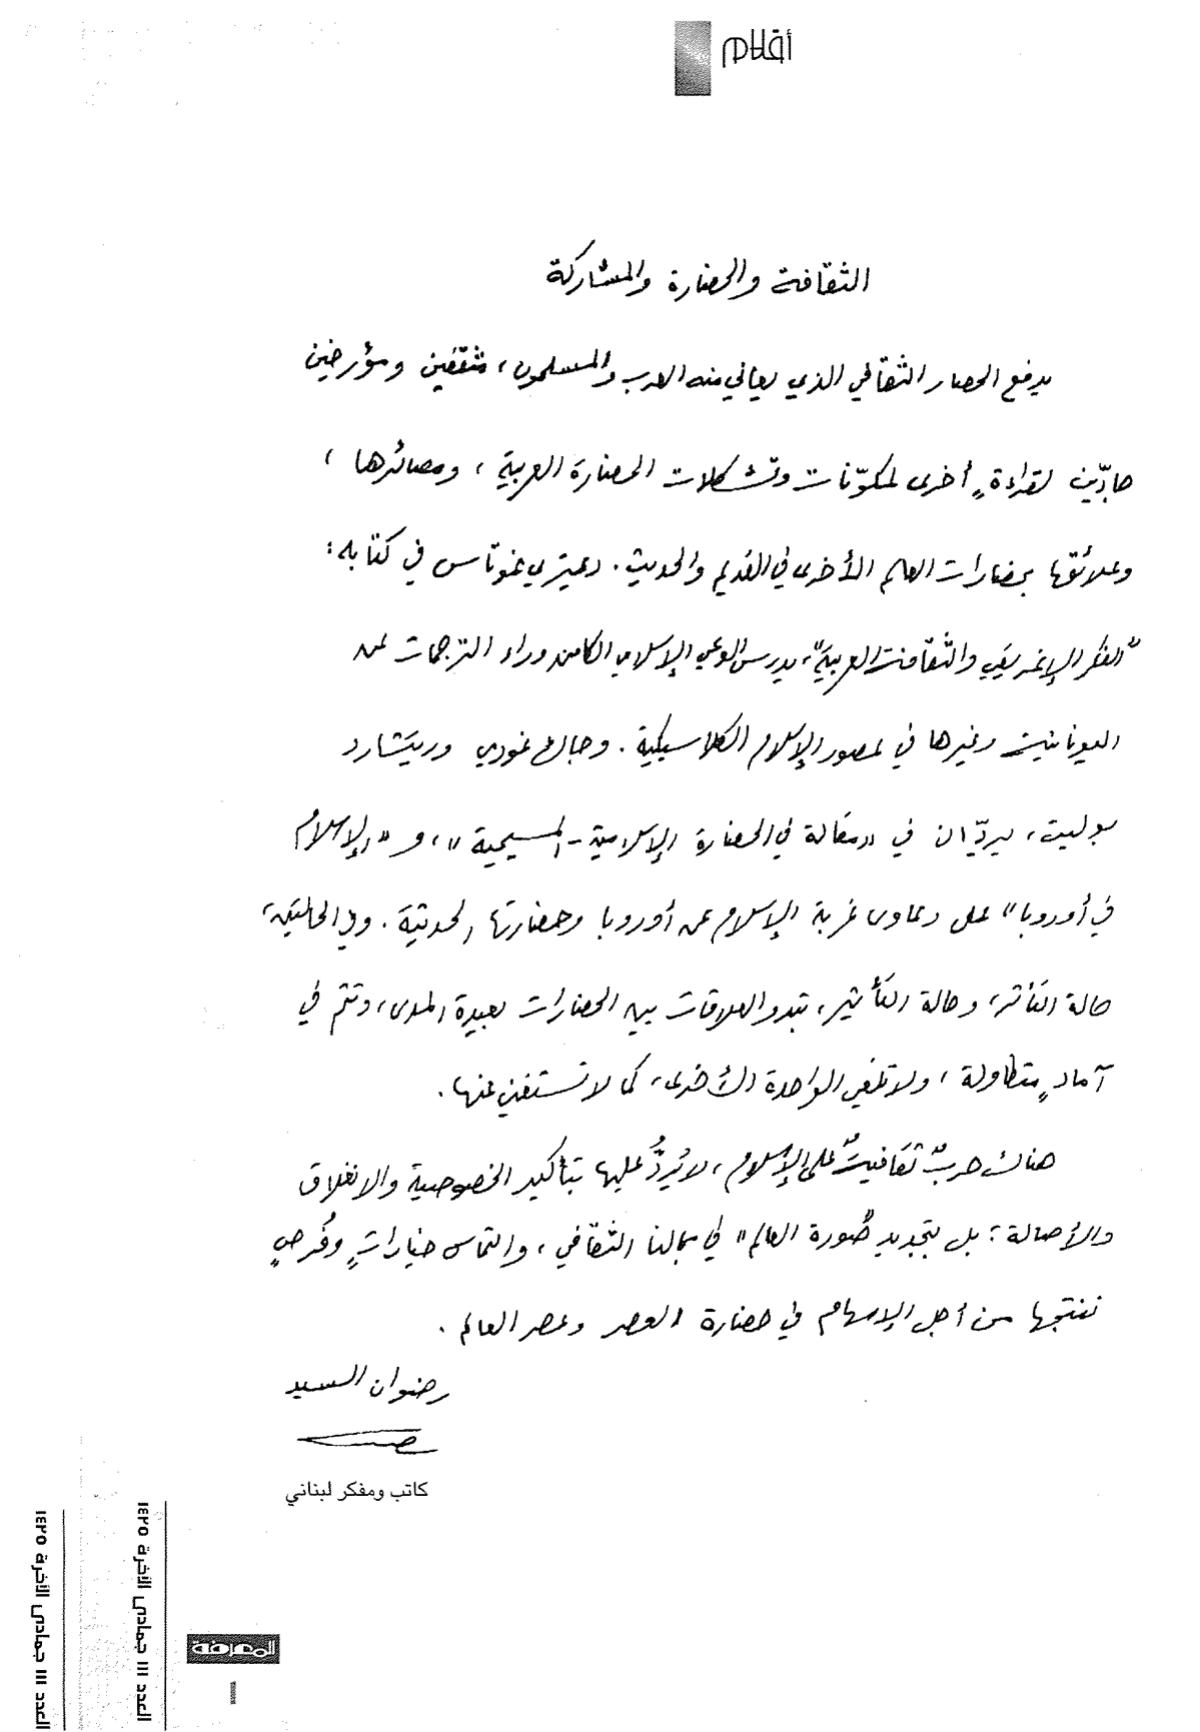 أقلام
الثقافة والحضارة والمشاركة
يدفع الحصار الثقافي الذي يعاني منه العرب والمسلمون، مثقفين ومؤرخين
جادّين لقراءةٍ أخرى لمكوّنات وتشكلات الحضارة العربية، ومصائرها،
وعلائقها بحضارات العالم الأخرى في القديم والحديث. ديمتري غوتاس في كتابه:
"الفكر الإغريقي والثقافة العربية"، يدرس الوعي الإسلامي الكامن وراء الترجمات عن
اليونانية وغيرها في عصور الإسلام الكلاسيكية. وجاك غودي وريتشارد
بوليت، يردّان في «مقالة في الحضارة الإسلامية - المسيحية»، و «الإسلام
في أوروبا» على دعاوى غربة الإسلام عن أوروبا وحضارتها الحديثة. وفي الحالتين،
حالة التأثر، وحالة التأثير، تبدو العلاقات بين الحضارات بعيدة المدى، وتتم في
آمادٍ متطاولة، ولا تلغي الواحدة الأخرى، كما لا تستغني عنها.
هناك حربٌ ثقافيةٌ على الإسلام، لا يُردُّ عليها بتأكيد الخصوصية والانغلاق
والأصالة؛ بل بتجديد "صُورة العالم" في مجالنا الثقافي، والتماس خياراتٍ وفُرصٍ
ننتجها من أجل الإسهام في حضارة العصر وعصر العالم.
رضوان السيد
كاتب ومفكر لبناني
العدد ١١١ جمادى الآخرة ١٤٢٥
العدد ١١١ جمادى الآخرة ١٤٢٥
المعرفة